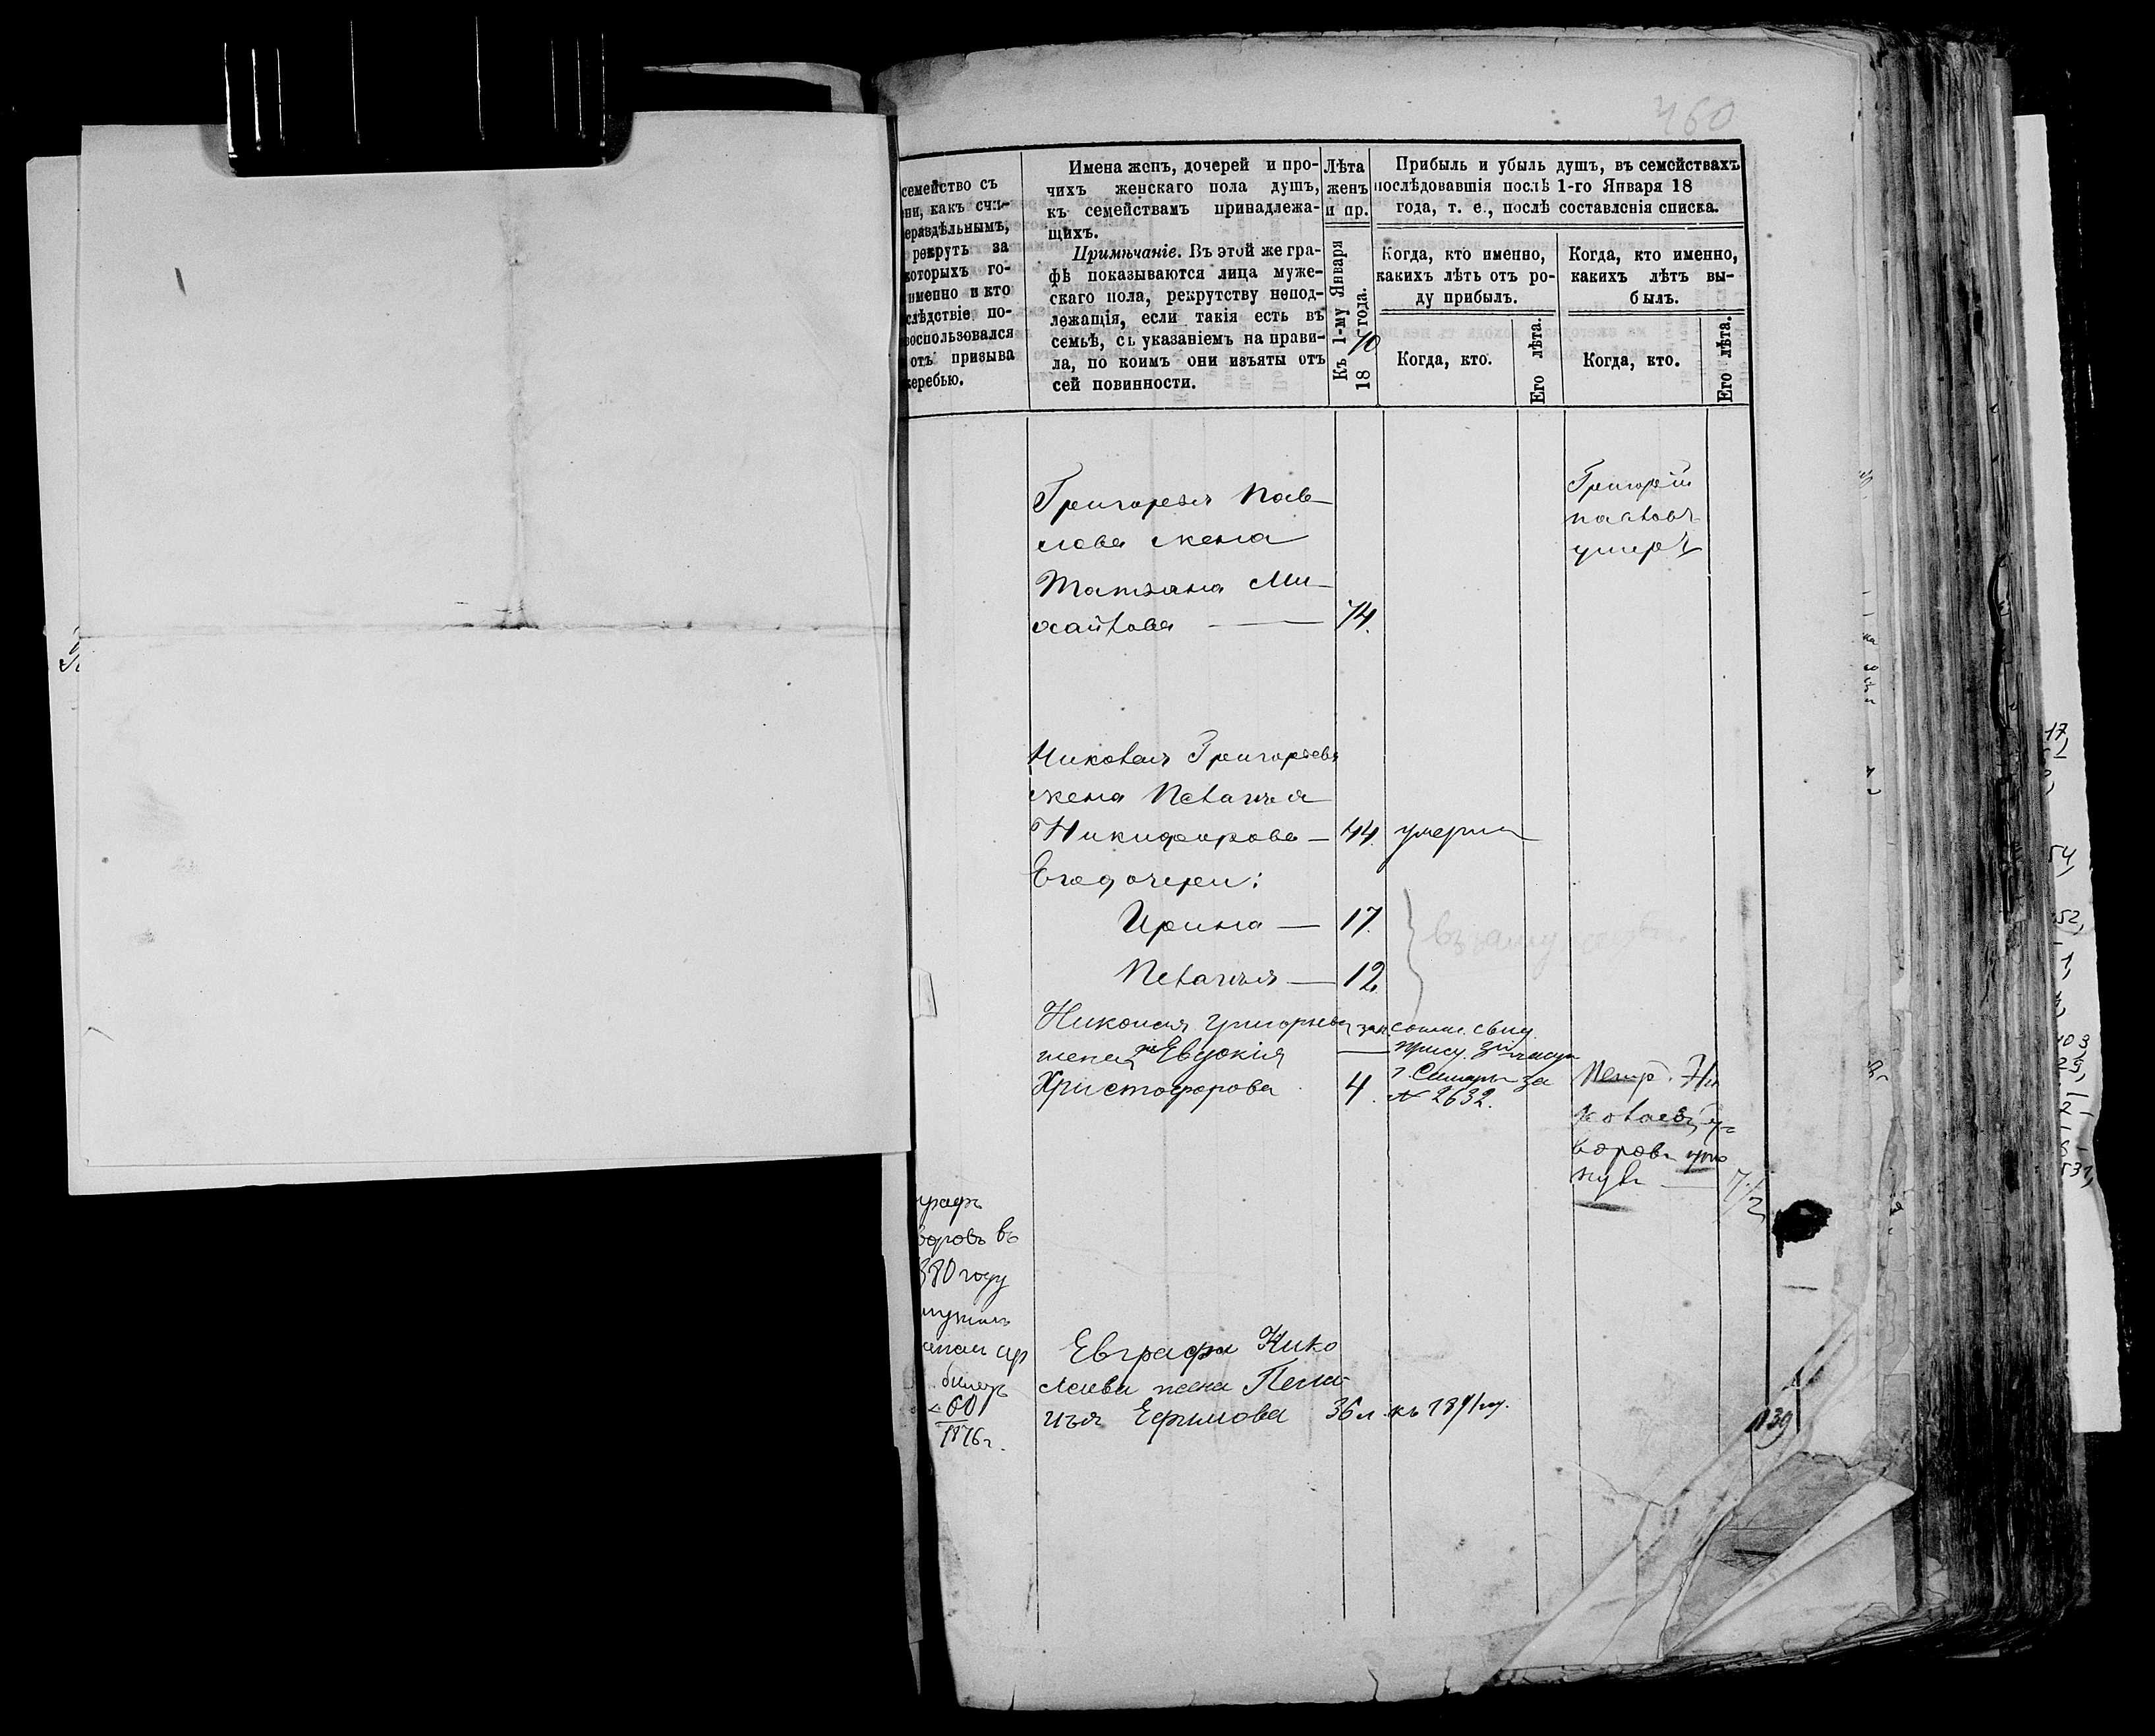 460
семейство съ
ни, какъ счи-
ераздѣльнымъ,
рекрутъ за
которыхъ го-
именно и кто
слѣдствіе по-
воспользовался
отъ призыва
жеребью.
Имена женъ, дочерей и про-
чихъ женскаго пола душъ,
къ семействамъ принадлежа-
щихъ.
Примѣчаніе. Въ этой же гра-
фѣ показываются лица муже-
скаго пола, рекрутству непод-
лежащія, если такія есть въ
семьѣ, съ указаніемъ на прави-
ла, по коимъ они изъяты отъ
сей повинности.
Лѣта
женъ
и пр.
Къ 1-му Января
1870 года.
Прибыль и убыль душъ, въ семействахъ
послѣдовавшія послѣ 1-го Января 18
года, т. е., послѣ составленія списка.
Когда, кто именно,
какихъ лѣтъ отъ ро-
ду прибылъ.
Когда, кто именно,
какихъ лѣтъ вы-
былъ.
Когда, кто.
Его лѣта.
Когда, кто.
Его лѣта.
Григорья Пав-
лова жена
Татьяна Ми-
хайлова — 74.
Григорій
Павловъ
умеръ
Николая Григорьева
жена Пелагия
Никифорова — 44. умерла
Его дочери:
Ирина — 17.
Пелагия — 12.
Николая Григорьева
жена Евдокия
Христофорова 4.
г. Самары за
№ 2632.
Петръ Ни
колаевъ
воровъ
графъ
воровъ въ
880 году
билетъ
60
1876 г.
Евграфа Нико
лаева жена Пела-
гъя Ефимова 36 л. къ 1891 году.
139